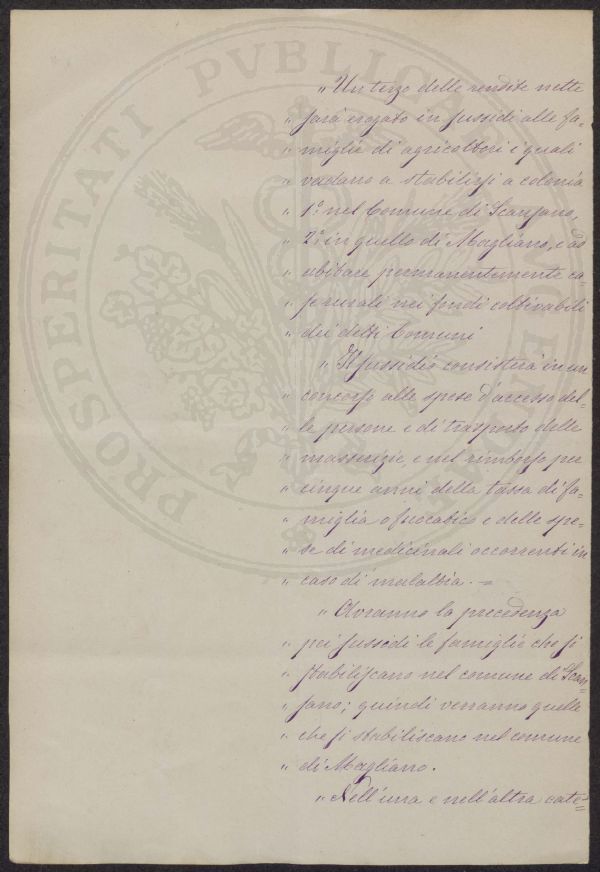 PROSPERITATI PVBLICAE AVGENDAE
" Un terzo delle rendite nette
" sarà erogato in sussidi alle fa=
" miglie di agricoltori i quali
" vadano a stabilirsi a colonia
" 1.º nel Comune di Scansano,
" 2.º in quello di Magliano, e ad
" abitare permanentemente ca=
" se rurali nei fondi coltivabili
" dei detti Comuni
" Il sussidio consisterà in un
" concorso alle spese d'accesso del=
" le persone e di trasporto delle
" masserizie, e nel rimborso per
" cinque anni della tassa di fa=
" miglia o fuocatico e delle spe=
" se di medicinali occorrenti in
" caso di malattia. =
" Avranno la precedenza
" pei sussidi le famiglie che si
" stabiliscano nel comune di Scan=
" sano; quindi verranno quelle
" che si stabiliscano nel comune
" di Magliano.
" Nell'una e nell'altra cate=